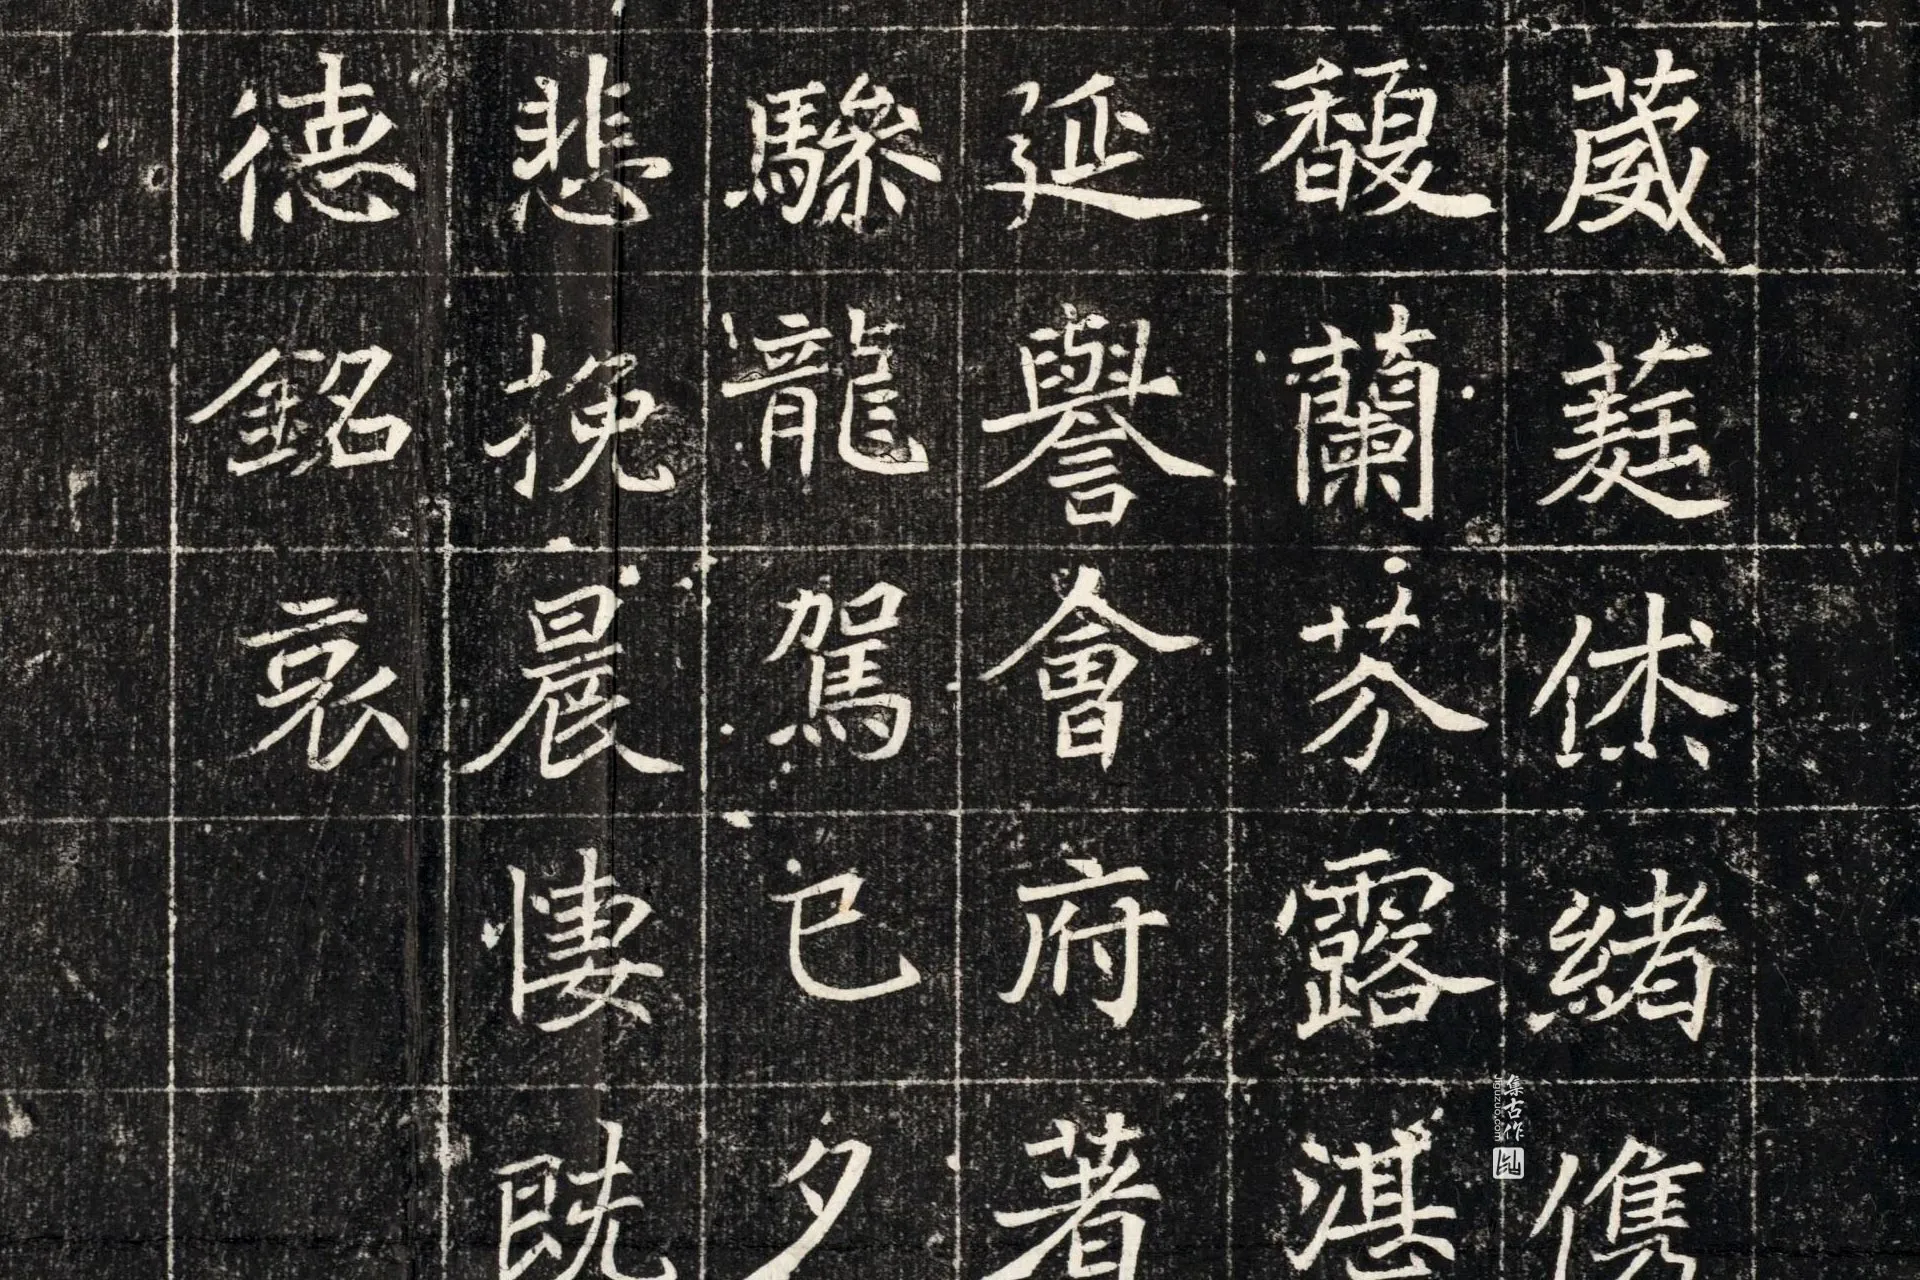 葳蕤烋緒儁
馥蘭芬露湛
延譽會府著
驂龍駕已夕
悲挽晨悽既
德銘哀
集古作
jiguzuo.com